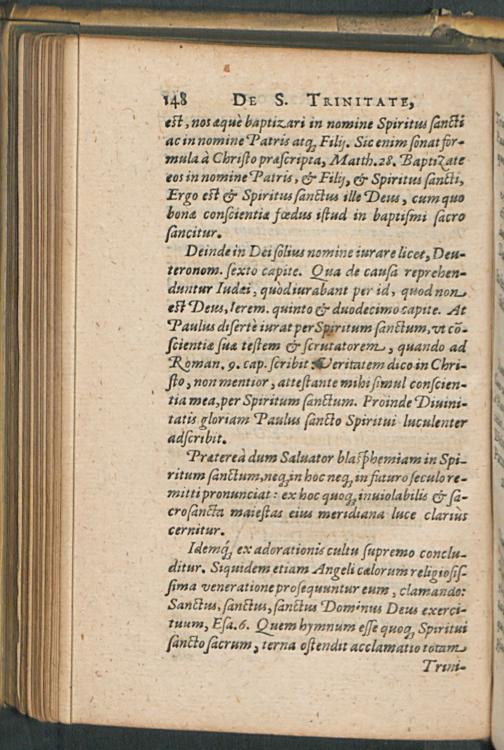 148 DE S. TRINITATE,
est, nos æquè baptizari in nomine Spiritus sancti
ac in nomine Patris atq; Filij. Sic enim sonat for-
mula à Christo præscripta, Matth. 28. Baptizate
eos in nomine Patris, & Filij, & Spiritus sancti,
Ergo est & Spiritus sanctus ille Deus, cum quo
bonæ conscientiæ fœdus istud in baptismi sacro
sancitur.
Deinde in Dei solius nomine iurare licet, Deu-
teronom. sexto capite. Qua de causa reprehen-
duntur Iudæi, quòd iurabant per id, quod non
est Deus, Ierem. quinto & duodecimo capite. At
Paulus disertè iurat per Spiritum sanctum, vt cō-
scientiæ suæ testem & scrutatorem, quando ad
Roman. 9. cap. scribit: Veritatem dico in Chri-
sto, non mentior, attestante mihi simul conscien-
tia mea, per Spiritum sanctum. Proinde Diuini-
tatis gloriam Paulus sancto Spiritui luculenter
adscribit.
Prætereà dum Saluator blasphemiam in Spi-
ritum sanctum, neq; in hoc neq; in futuro seculo re-
mitti pronunciat: ex hoc quoq; inuiolabilis & sa-
crosancta maiestas eius meridiana luce clariùs
cernitur.
Idemq́; ex adorationis cultu supremo conclu-
ditur. Siquidem etiam Angeli cælorum religiosis-
sima veneratione prosequuntur eum, clamando:
Sanctus, sanctus, sanctus Dominus Deus exerci-
tuum, Esa. 6. Quem hymnum esse quoq; Spiritui
sancto sacrum, terna ostendit acclamatio totam
Trini-